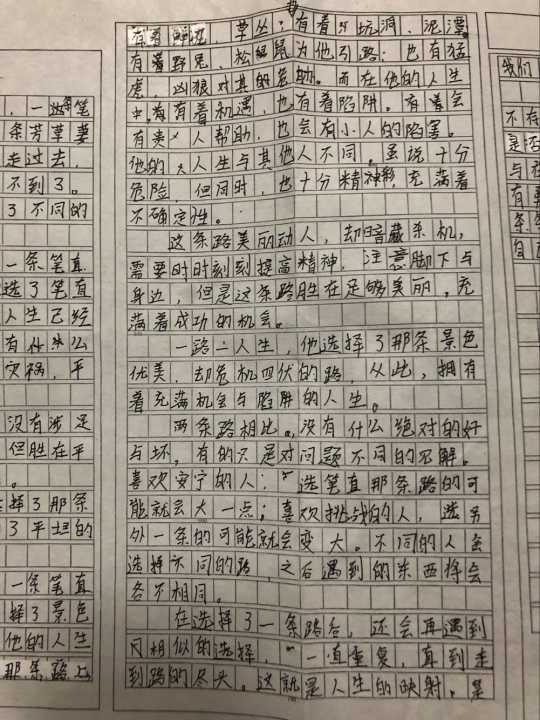 ，一边笔
条芳草萋
走过去，
不到了。
了不同的
一条笔直
选了笔直
人生已经
有什么
灾祸，平
没有涉足
但胜在平
择了那条
了平坦的
一条笔直
择了景色
他的人生
那条路上
有着鲜花、草丛；有着坑洞、泥潭。
有着野兔、松鼠为他引路；也有猛
虎、凶狼对其的危助。而在他的人生
中，有着机遇，也有着陷阱。有着会
有贵人帮助，也会有小人的陷害。
他的人生与其他人不同。虽说十分
危险，但同时，也十分精彩，充满着
不确定性。
这条路美丽动人，却暗藏杀机，
需要时时刻刻提高精神，注意脚下与
身边，但是这条路胜在足够美丽，充
满着成功的机会。
一路一人生，他选择了那条景色
优美，却危机四伏的路，从此，拥有
着充满机会与陷阱的人生。
两条路相比。没有什么绝对的好
与坏，有的只是对问题不同的见解。
喜欢安宁的人：选笔直那条路的可
能就会大一点；喜欢挑战的人，选另
外一条的可能就会变大。不同的人会
选择不同的路，之后遇到的东西将会
各不相同。
在选择了一条路后，还会再遇到
相似的选择，一直重复，直到走
到路的尽头。这就是人生的映射。是
我们
不存
是否
与在
有着
条条
自